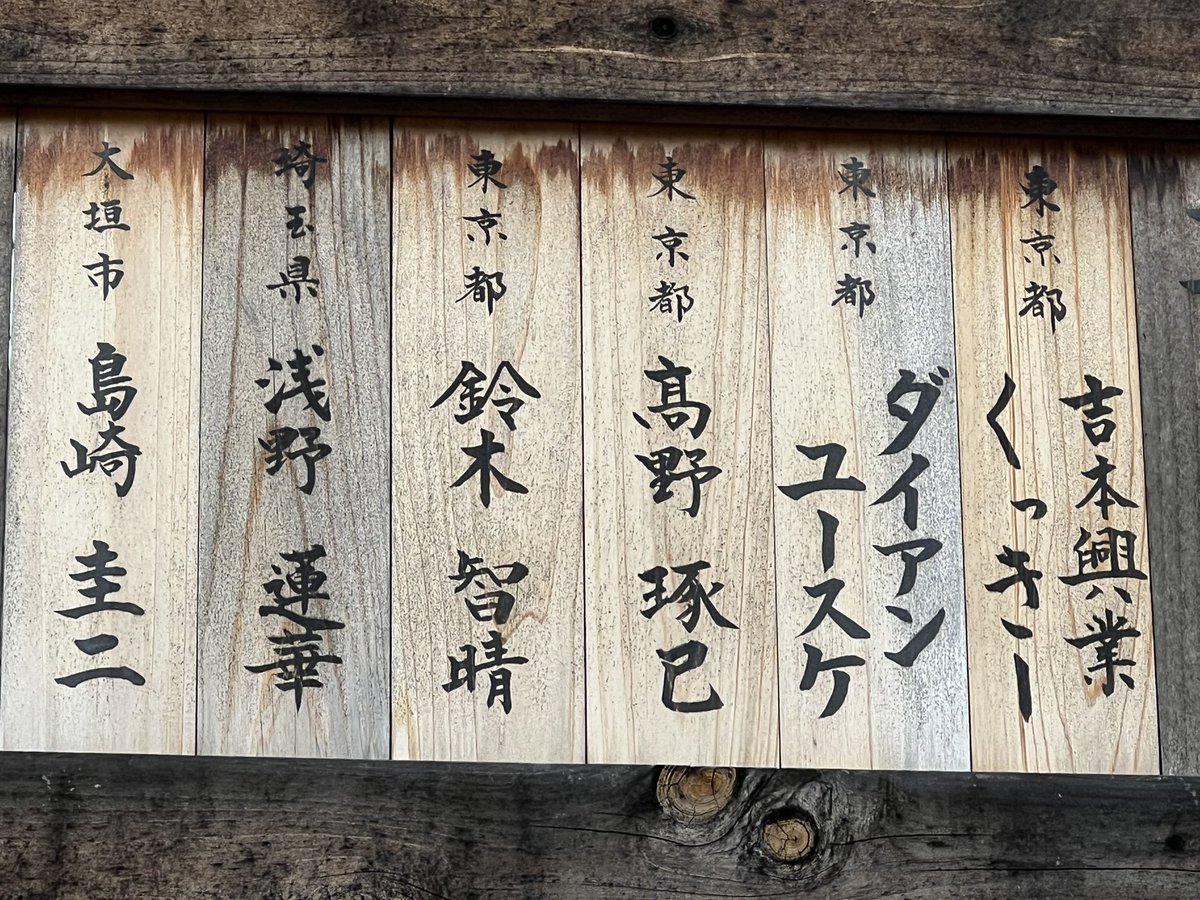 東京都
吉本興業
くっきー
東京都
ダイアン
ユースケ
東京都
髙野 琢巳
東京都
鈴木 智晴
埼玉県
浅野 蓮華
大垣市
島崎 圭二